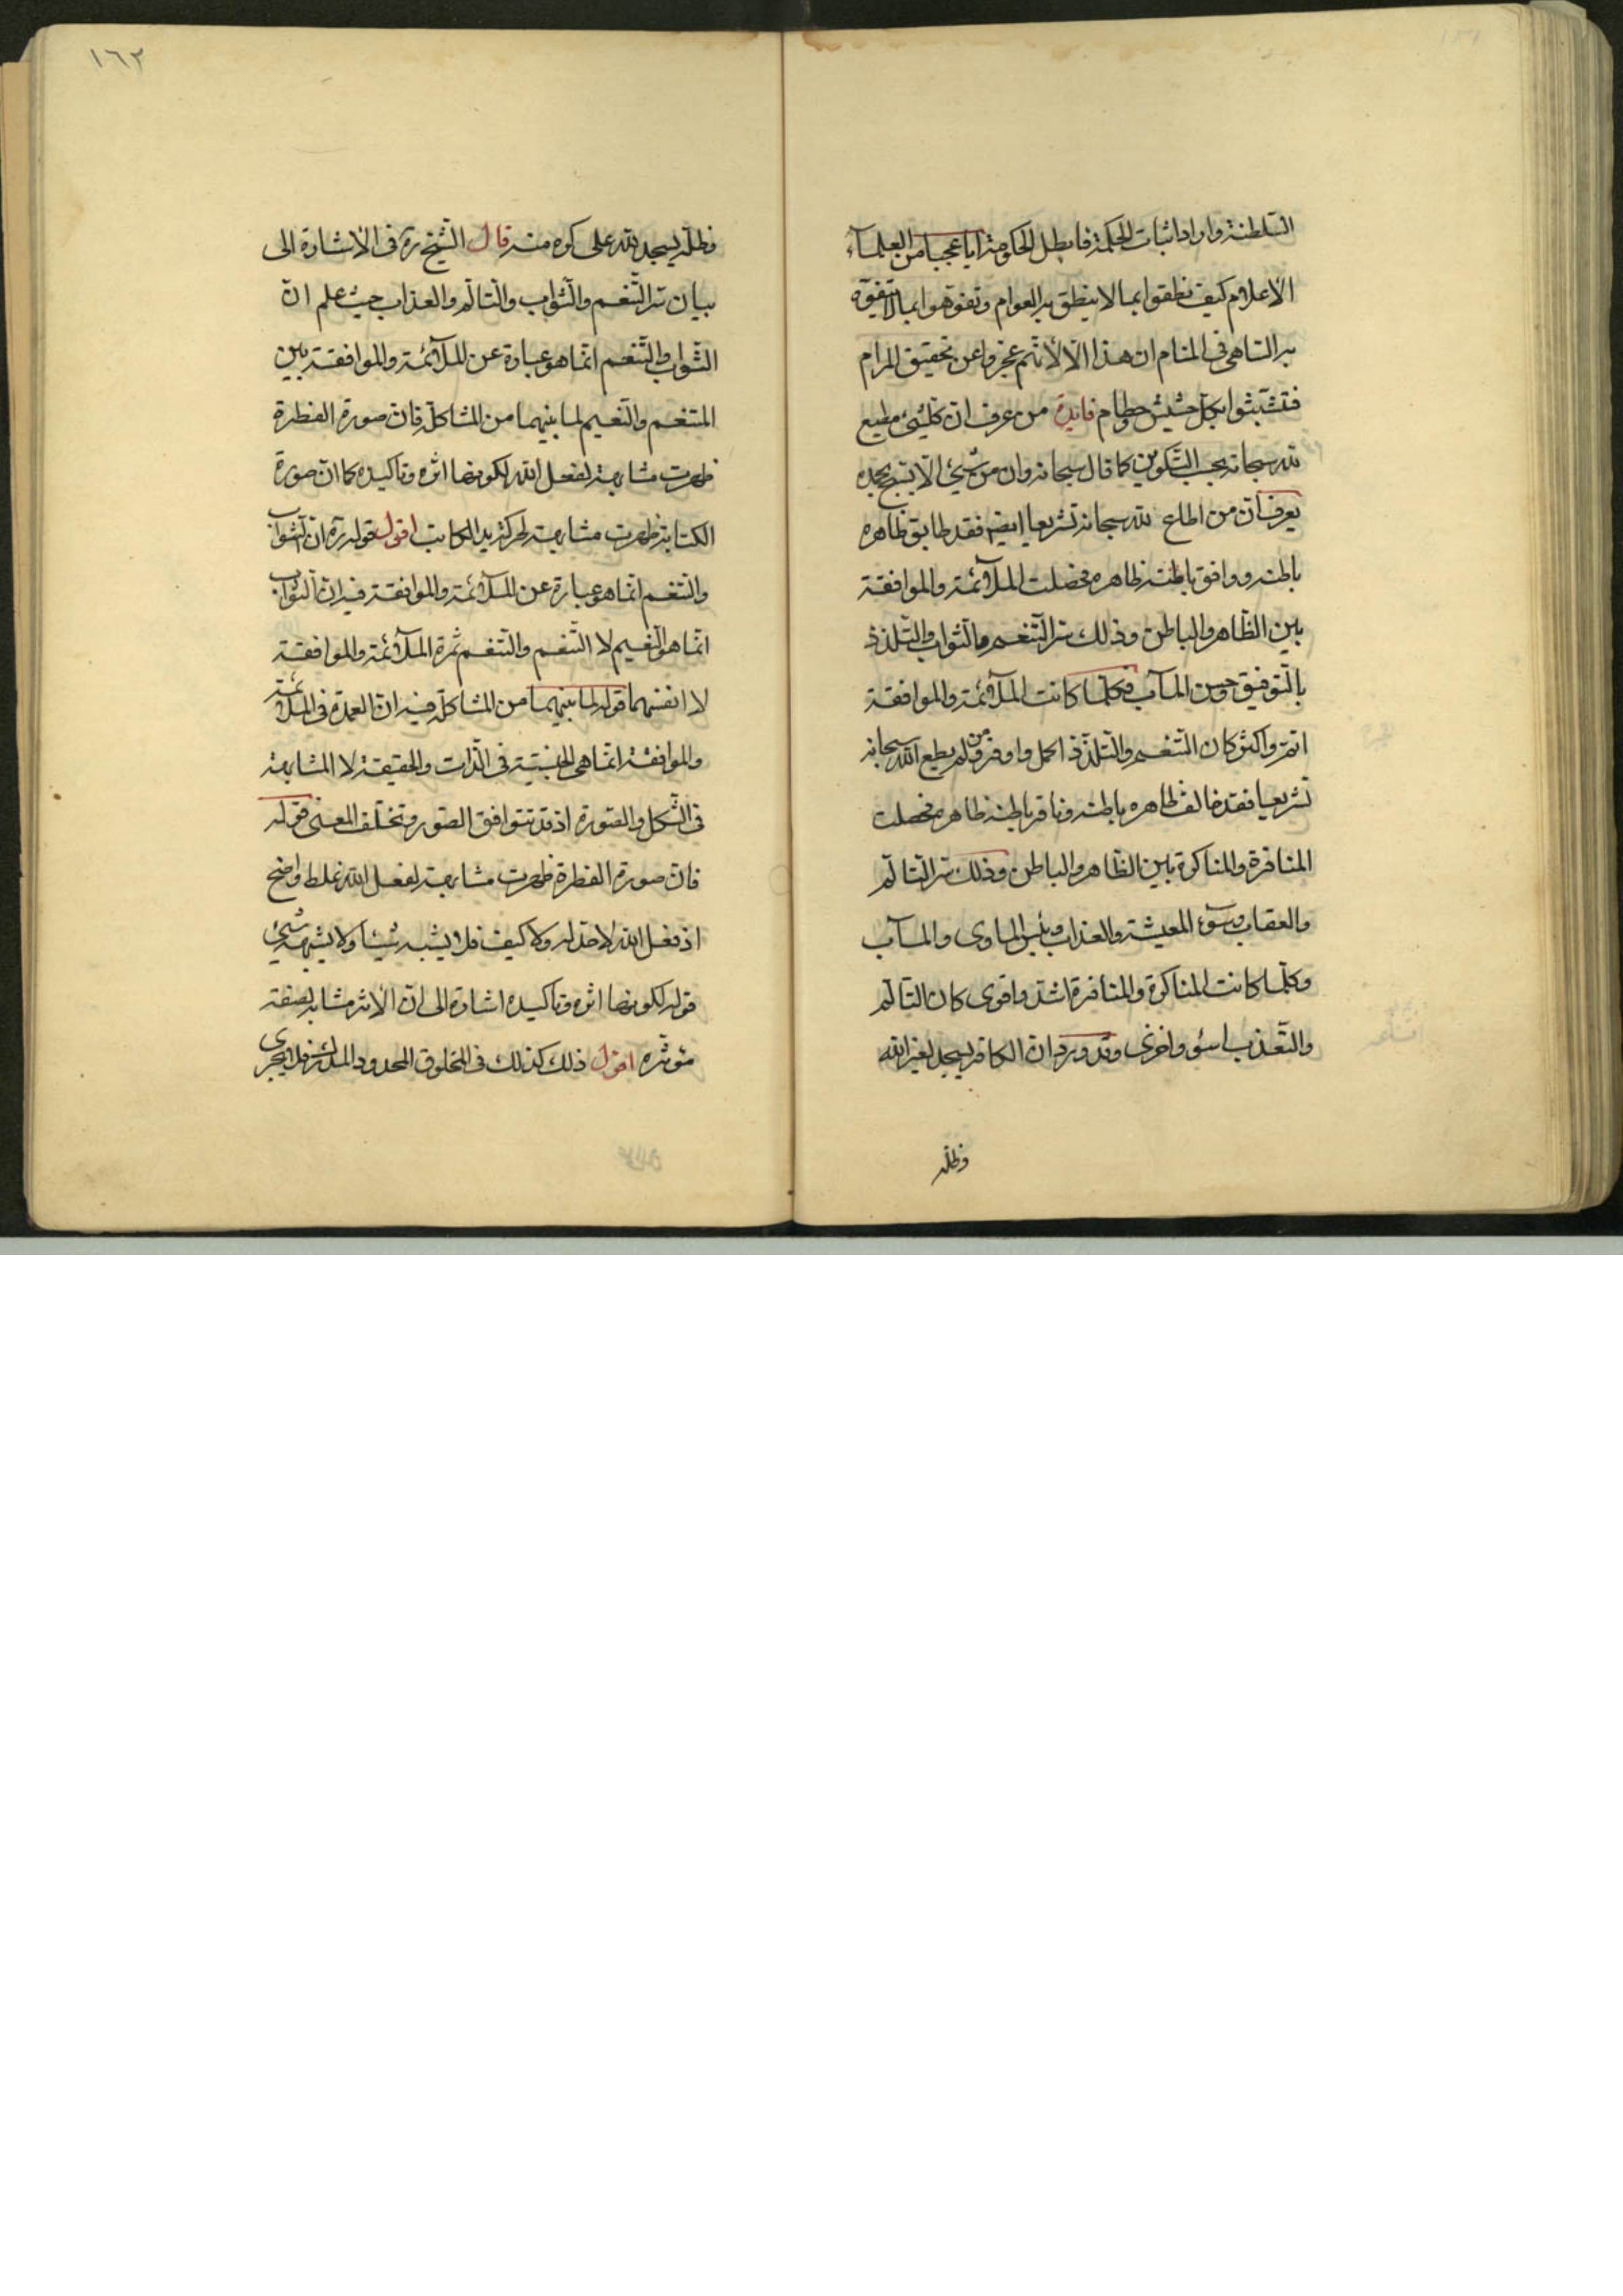 السّلطنة واراد اثبات الحكمة فابطل الحكومة ايا عجبا من العلمآء
الأعلام كيف نطقوا بما لا ينطق به العوام وتفوّهوا بما لا يتفوّه
به الساهي في المنام ان هذا الّا لأنّهم عجزوا عن تحقيق المرام
فتشبّثوا بكلّ حشيش وحطام فايدة من عرف انّ كلّ شيء مطيع
لله سبحانه بحسب التكوين كما قال سبحانه وان من شيء الّا يسبّح بحمده
يعرف انّ من اطاع لله سبحانه تشريعيا ايضا فقد طابق ظاهره
باطنه ووافق باطنه ظاهره فحصلت الملآئمة والموافقة
بين الظّاهر والباطن وذلك سرّ التّنعّم والثّواب والتّلذّذ
بالتّوفيق وحسن المآب فكلّما كانت الملآئمة والموافقة
اتمّ واكثر كان التّنعّم والتّلذّذ اكمل واوفر ومن لم يطع الله سبحانه
تشريعيا فقد خالف ظاهره باطنه ونافر باطنه ظاهره فحصلت
المنافرة والمناكرة بين الظّاهر والباطن وذلك سرّ التّألّم
والعقاب وسوء المعيشة والعذاب وبئس المأوى والمآب
وكلّما كانت المناكرة والمنافرة اشدّ واقوى كان التألّم
والتّعذّب اسوء واخزى وقد ورد انّ الكافر يسجد لغير الله
وظلّه
١٦٢
وظلّه يسجد لله على كره منه قال الشّيخ ره في الأشارة الى
بيان سرّ التّنعّم والثّواب والتّألّم والعذاب حيث علم انّ
الثّواب والتّنعّم انّما هو عبارة عن الملآئمة والموافقة بين
المتنعّم والنّعيم لما بينهما من المشاكلة فانّ صورة الفطرة
ظهرت مشابهة لفعل الله لكونها اثره وتأكيده كما انّ صورة
الكتابة ظهرت مشابهة لحركة يد الكاتب اقول قوله ره انّ الثّواب
والتّنعّم انّما هو عبارة عن الملآئمة والموافقة فيه انّ الثّواب
انّما هو النّعيم لا التّنعّم والتّنعّم ثمرة الملآئمة والموافقة
لا انفسهما قوله لما بينهما من المشاكلة فيه انّ العمدة في الملآئمة
والموافقة انّما هي الجنسيّة في الذّات والحقيقة لا المشابهة
في الشّكل والصّورة اذ قد تتوافق الصّور وتختلف المعنى قوله
فانّ صورة الفطرة ظهرت مشابهة لفعل الله غلط واضح
اذ فعل الله لا حدّ له ولا كيف فلا يشبه شيئا ولا يشبهه شيء
قوله لكونها اثره وتأكيده اشارة الى انّ الأثر مشابه لصفة
مؤثّره اقول ذلك كذلك في المخلوق المحدود المدرك فلا يجرى